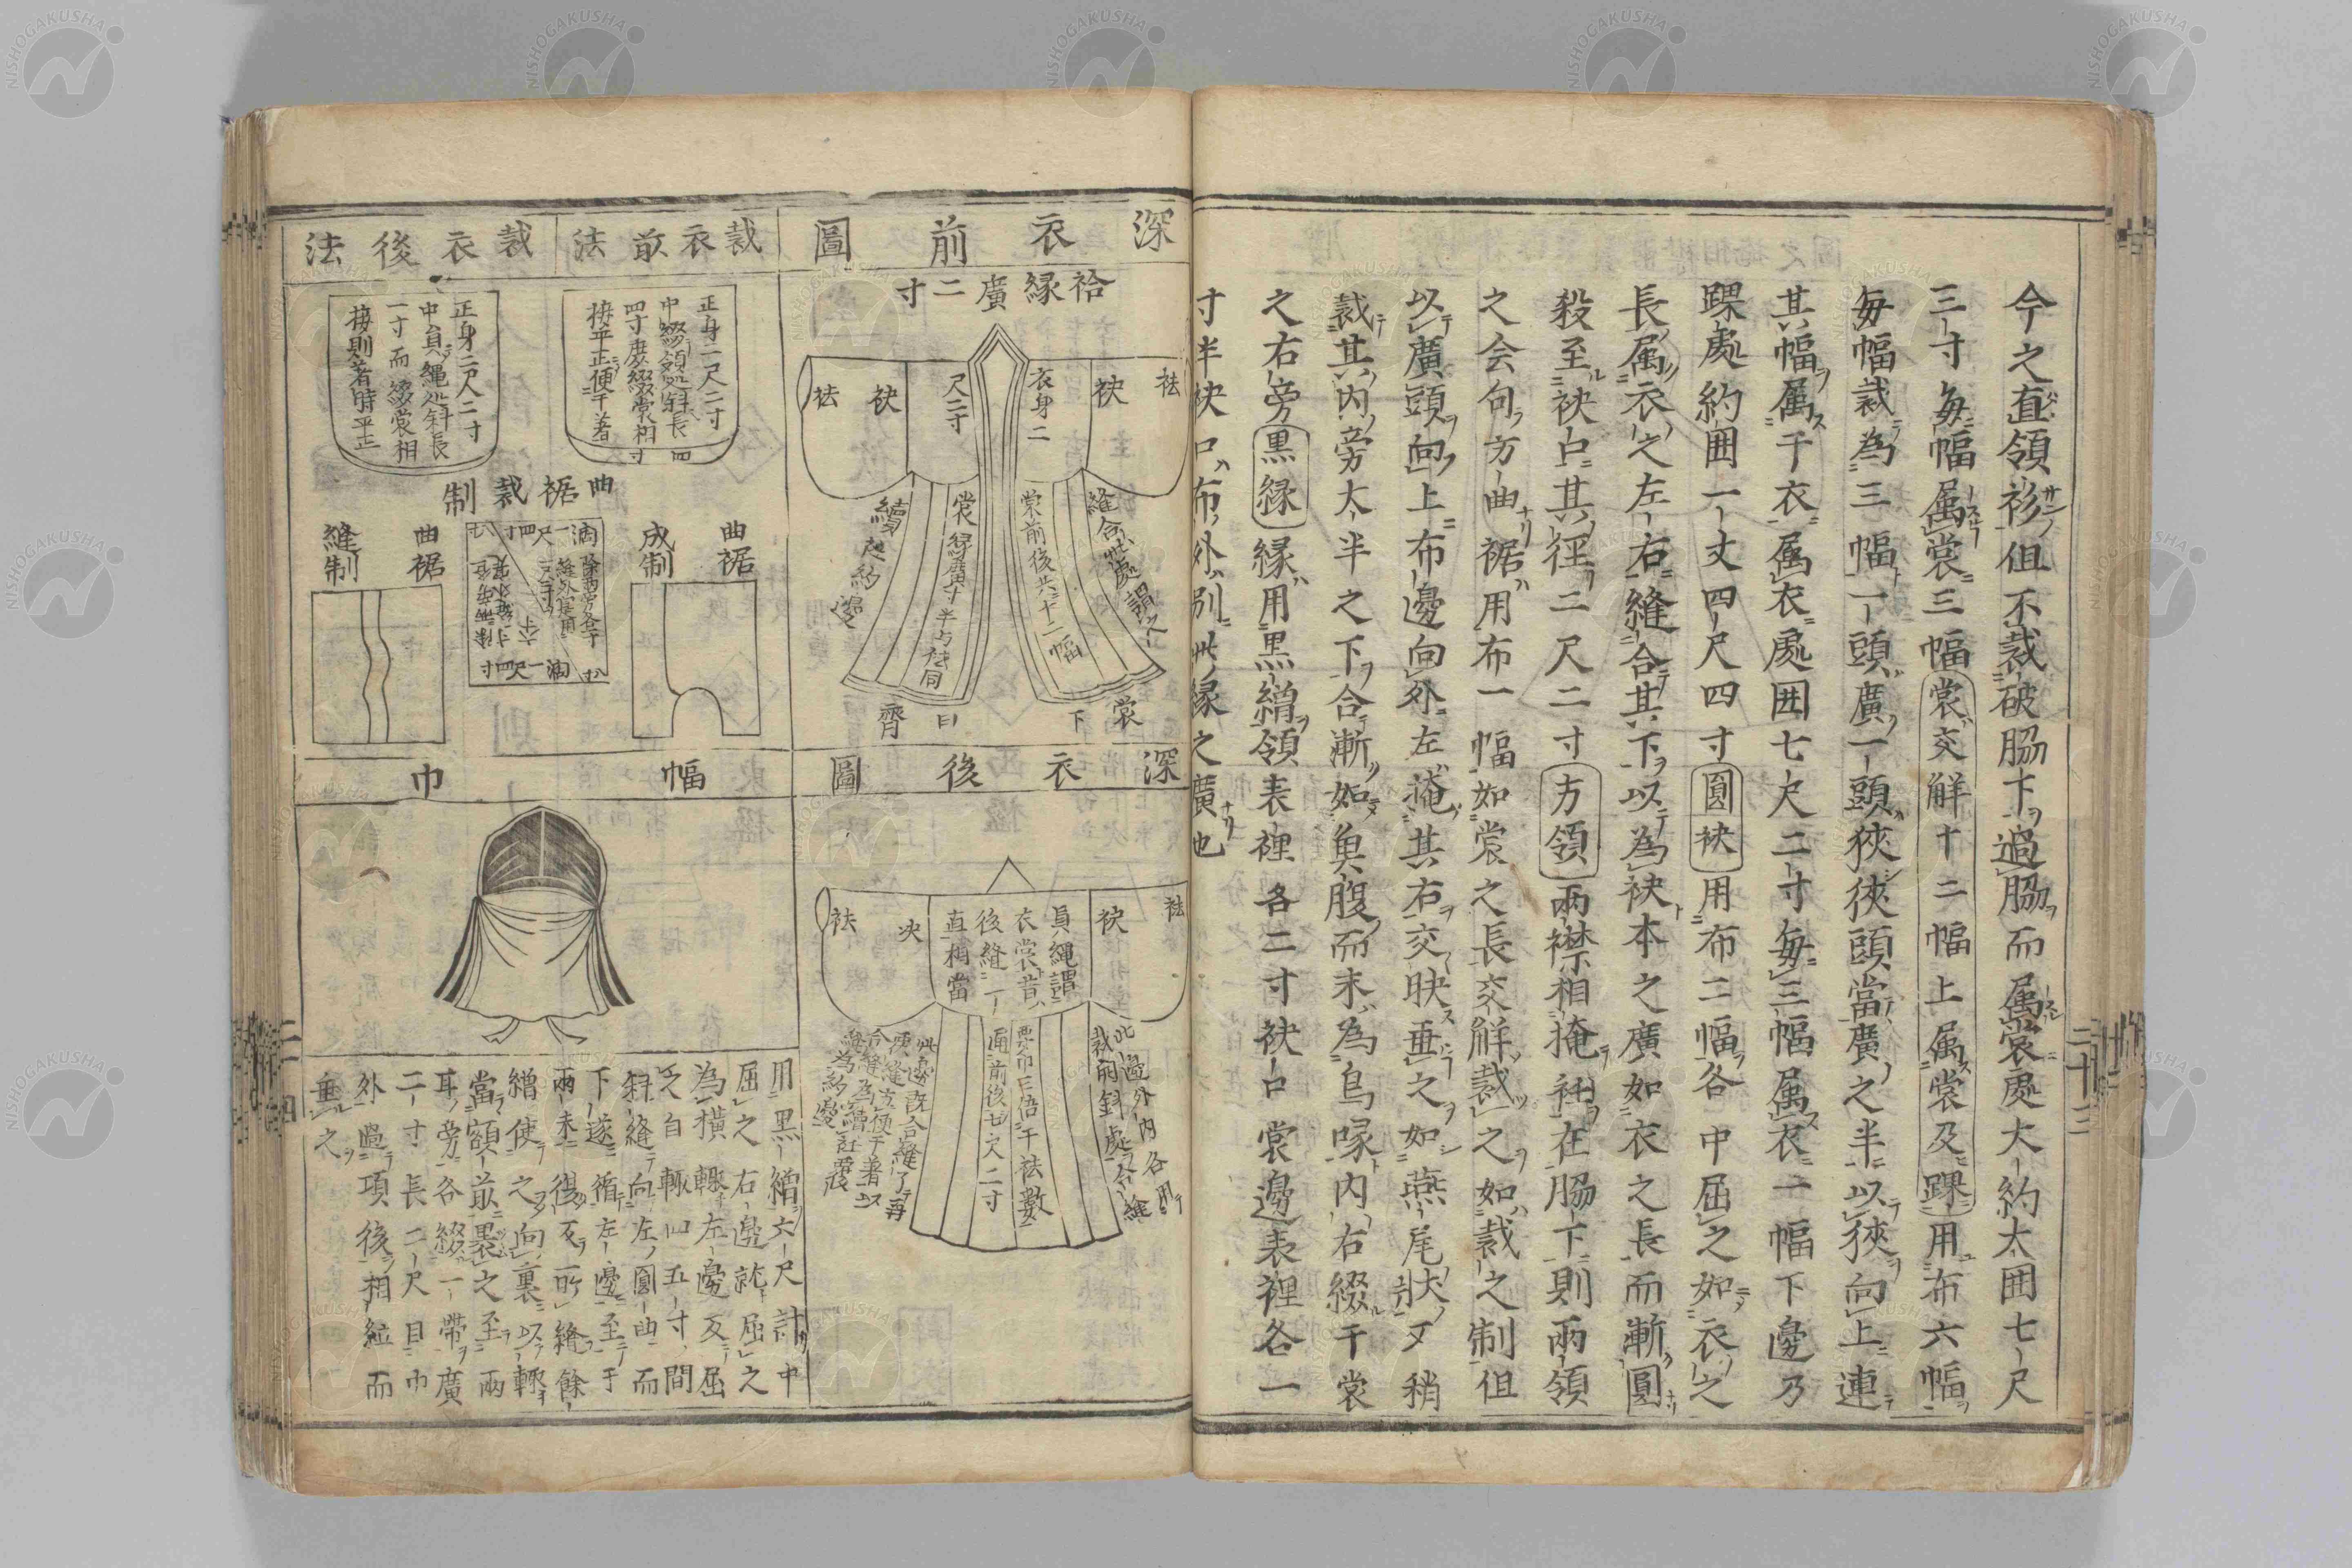 今之直領衫但不裁破脇下過脇而属裳處大約太囲七尺
三寸毎幅属裳三幅裳交解十二幅上属裳及踝用布六幅
毎幅裁為三幅一頭廣一頭狹狹頭當廣之半以狹向上連
其幅属于衣属衣處囲七尺二寸毎三幅属衣一幅下邊乃
踝處約囲一丈四尺四寸圓袂用布二幅各中屈之如衣之
長属衣之左右縫合其下以為袂本之廣如衣之長而漸圓
殺至袂口其徑二尺二寸方領兩襟相掩衽在脇下則兩領
之会句方曲裾用布一幅如裳之長交觧裁之如裁之制但
以廣頭向上布邊向外左掩其右交映垂之如燕尾狀又稍
裁其内旁太半之下合漸如魚腹而末為鳥喙内右綴于裳
之右旁黒縁縁用黒繒領表裡各二寸袂口裳邊表裡各一
寸半袂口布外別此縁之廣也
二十三
深衣前圖
袷縁廣二寸
袪
袂
衣身二
尺二寸
袂
袪
縫合此處謂之
裳前後共十二幅
裳
續衽約邊
裳下
曰齊
裁衣前法
正身二尺二寸
中綴領処斜長四
四寸度綴裳相寸
接平正便于著
裁衣後法
正身二尺二寸
中負縄処斜長
一寸而綴裳相
接則著時平正
曲裾裁制
曲裾
成制
曲裾
縫制
深衣後圖
袪
袂
負縄謂
衣裳背
後縫一
直相當
袂
袪
此邊外内各用
裁前斜處合縫
要
面前後七尺二寸
幅巾
用黒繒六尺計中
屈之右邊就屈之
為横㡇左邊反屈
之自㡇四五寸間
斜縫向左圓曲而
下遂循左邊至于
兩末復反所縫餘
繒使之向裏以㡇
當額前裹之至兩
耳旁各綴一帶廣
二寸長二尺自巾
外過項後相結而
垂之